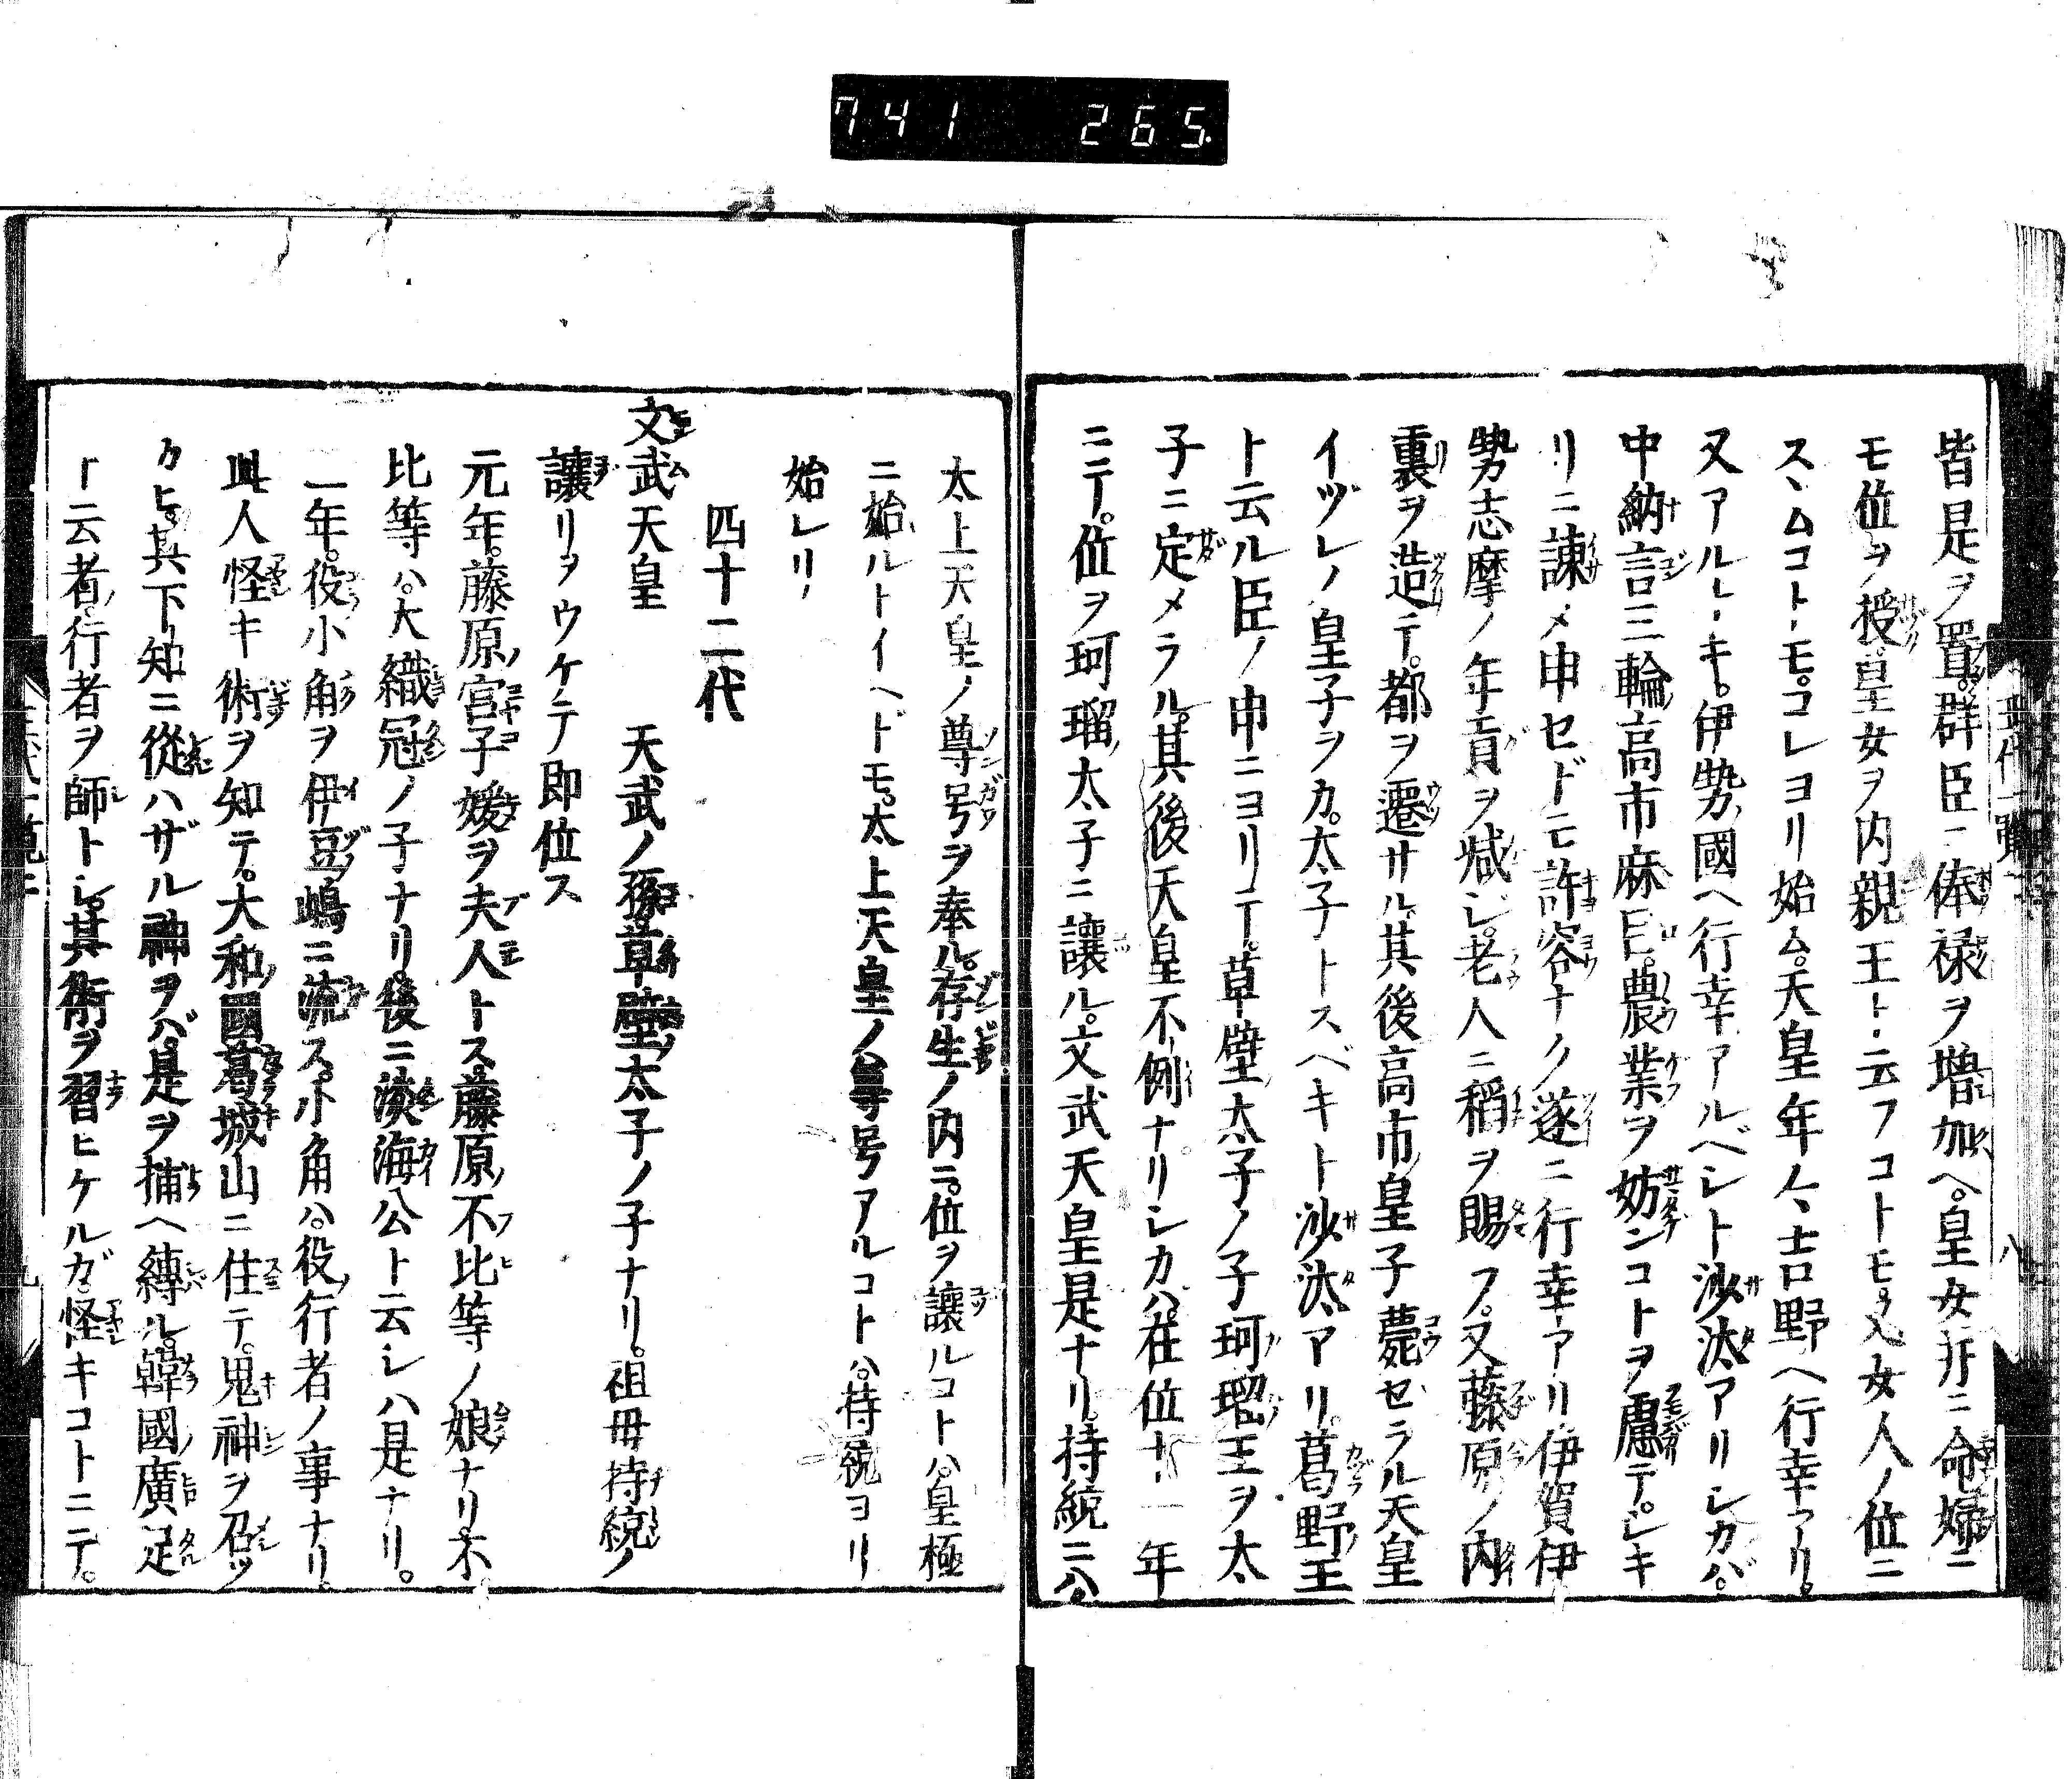 741 265.
皆是ヲ置。群臣ニ俸禄ヲ増加ヘ。皇女并ニ命婦ニ
モ位ヲ授。皇女ヲ内親王ト云フコトモ。又女人ノ位ニ
スヽムコトモ。コレヨリ始ム。天皇年々吉野ヘ行幸アリ。
又アルトキ。伊勢國ヘ行幸アルベシト沙汰アリシカバ。
中納言三輪高市麻呂。農業ヲ妨ンコトヲ慮テ。シキ
リニ諫メ申セドモ許容ナク遂ニ行幸アリ伊賀伊
勢志摩ノ年貢ヲ減シ。老人ニ稲ヲ賜フ。又藤原ノ内
裏ヲ造テ。都ヲ遷サル。其後高市皇子薨セラル天皇
イヅレノ皇子ヲカ。太子トスベキト沙汰アリ。葛野王
ト云ル臣ノ申ニヨリテ。草壁太子ノ子珂瑠王ヲ太
子ニ定メラル。其後天皇不例ナリシカバ。在位十一年
ニテ。位ヲ珂瑠太子ニ讓ル。文武天皇是ナリ。持統ニハ。
太上天皇ノ尊号ヲ奉ル。存生ノ内ニ。位ヲ讓ルコトハ。皇極
ニ始ルトイヘドモ。太上天皇ノ尊号アルコトハ。持統ヨリ
始レリ
四十二代
文武天皇 天武ノ孫草壁太子ノ子ナリ。祖母持統ノ
讓リヲウケテ即位ス
元年。藤原宮子媛ヲ夫人トス。藤原不比等ノ娘ナリ。不
比等ハ。大織冠ノ子ナリ。後ニ淡海公ト云シハ是ナリ。
二年。役小角ヲ伊豆嶋ニ流ス。小角ハ。役行者ノ事ナリ。
此人怪キ術ヲ知テ。大和國葛城山ニ住テ。鬼神ヲ召ツ
カヒ。其下知ニ從ハザル神ヲバ。是ヲ捕ヘ縛ル。韓國廣足
ト云者。行者ヲ師トシ。其術ヲ習ヒケルガ。怪キコトニテ。